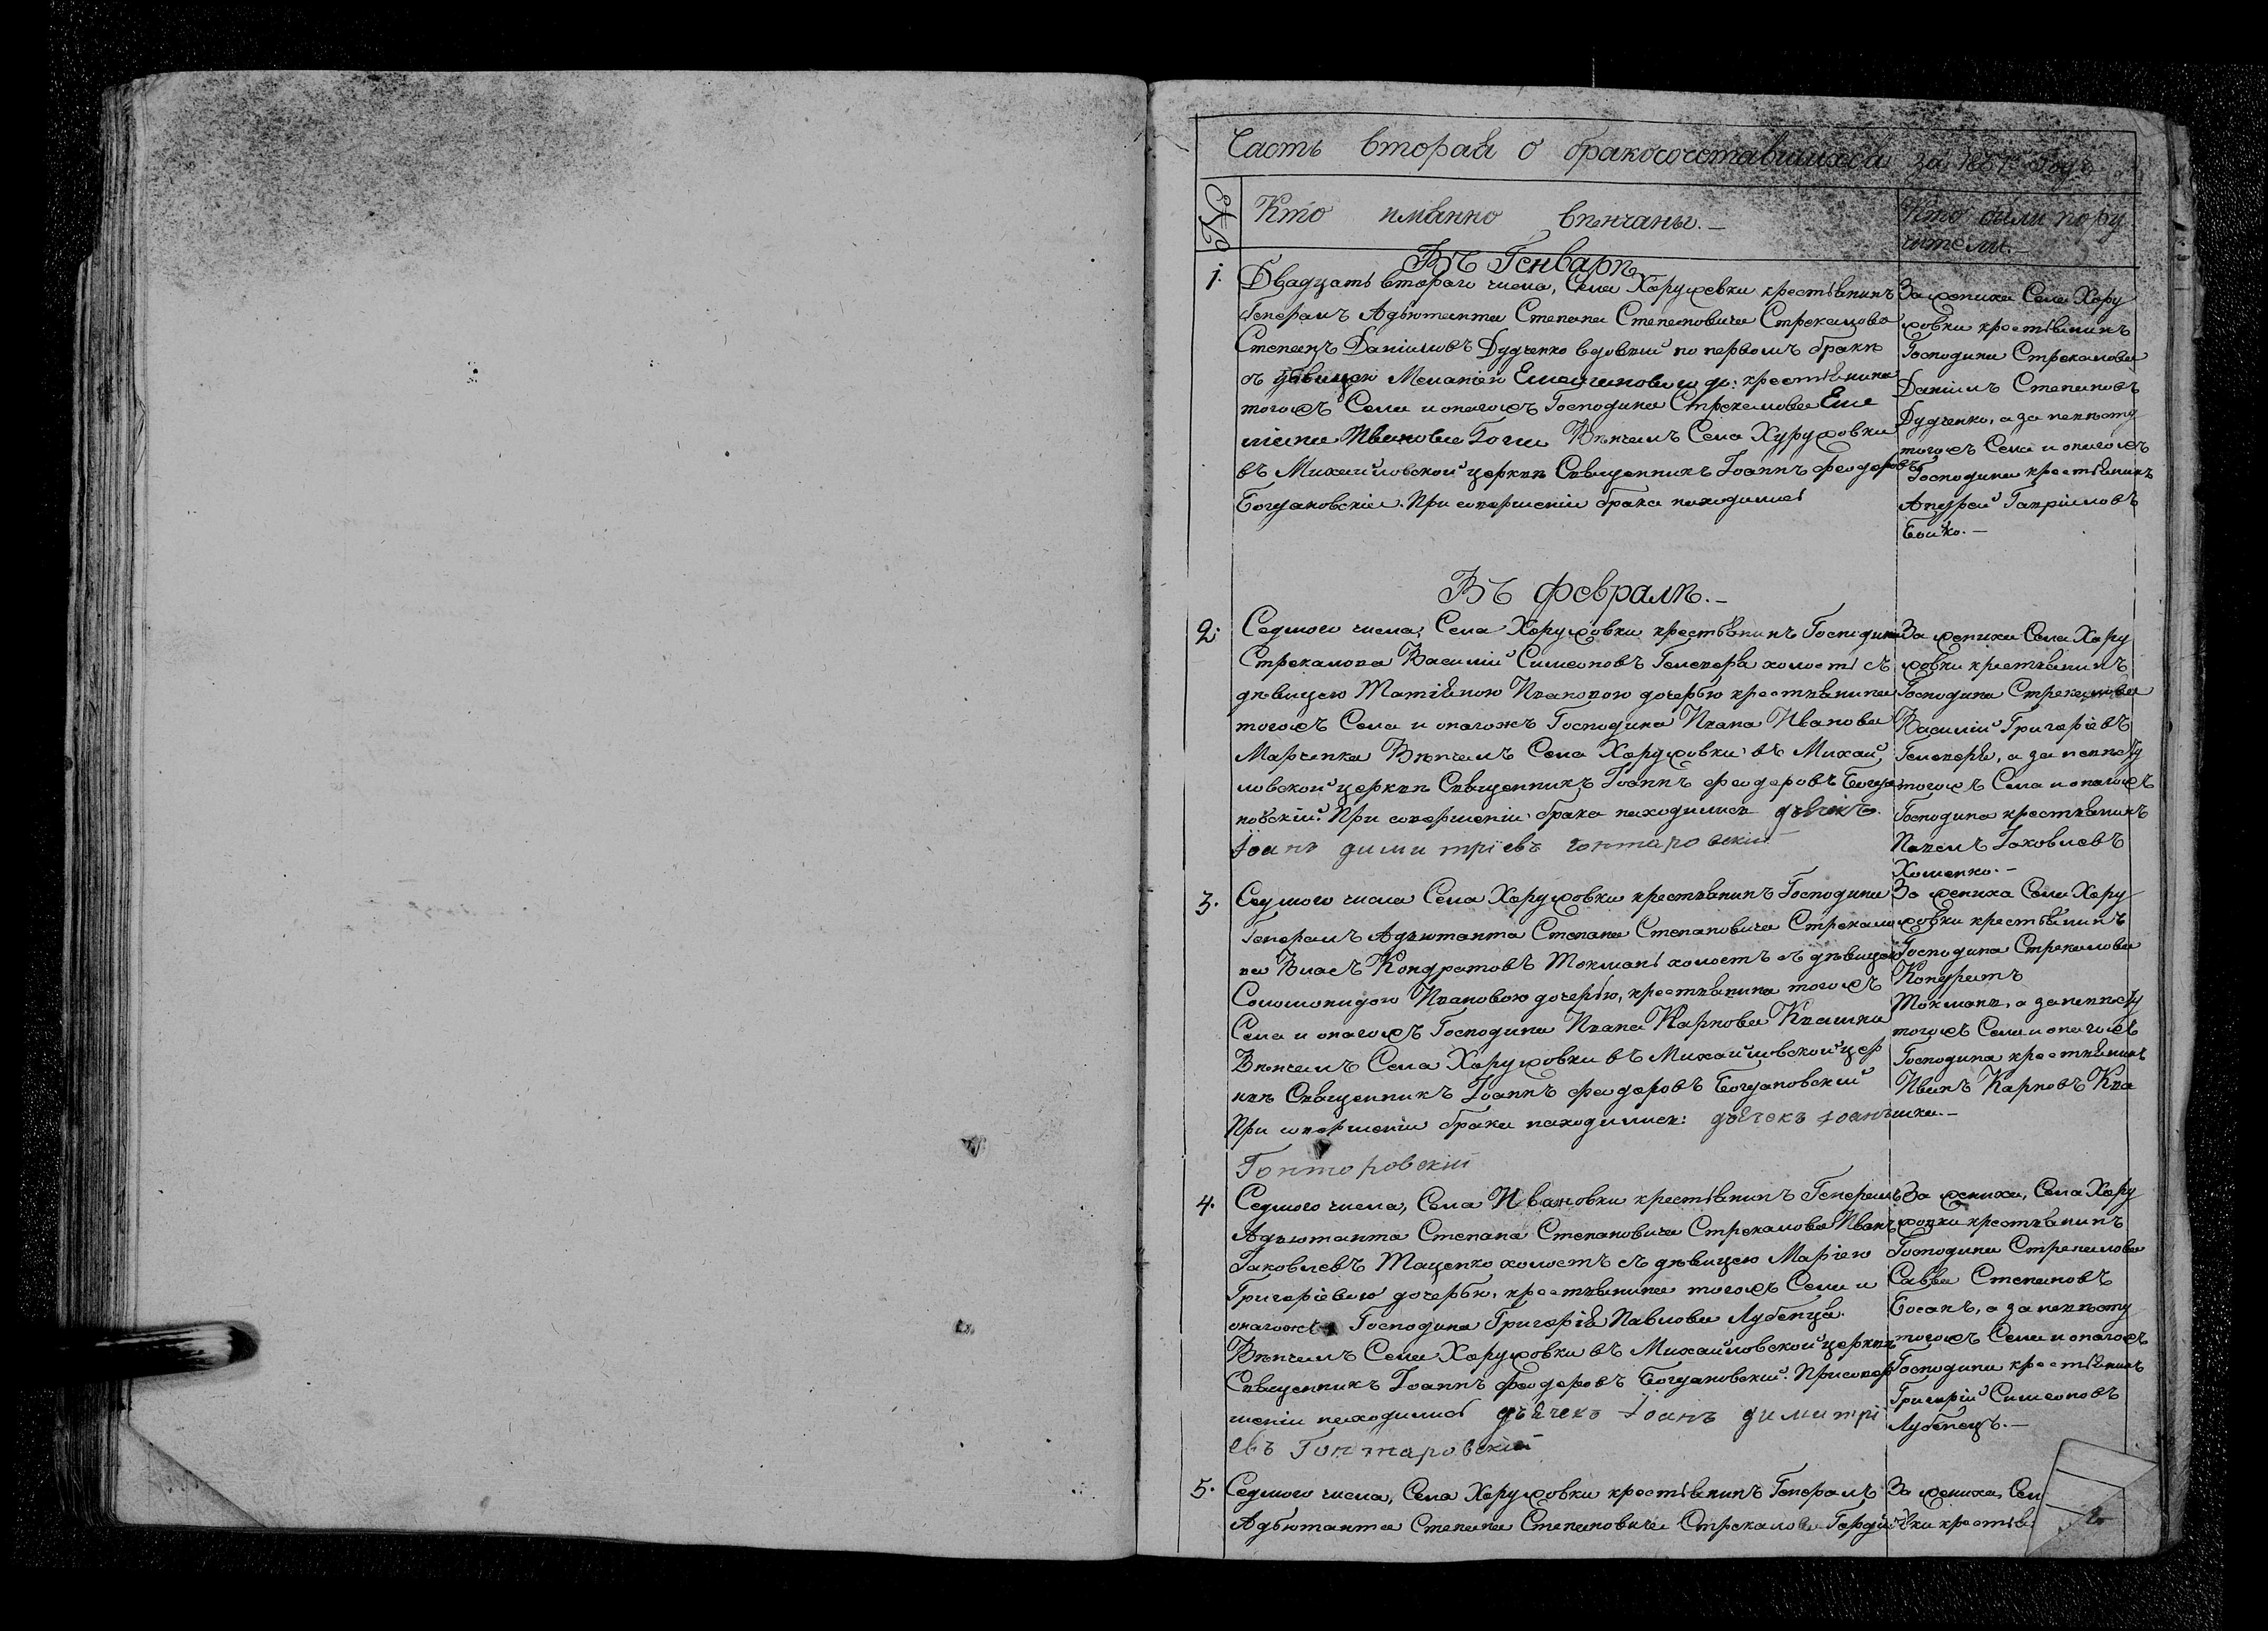 Часть вторая о бракосочетавшихся за Годъ
№
Кто имянно венчаны.
Кто были пору
чители.
Въ Генваре
1.
Двадцать втораго числа, Села Хоружовки крестьянинъ
Генералъ Адъютанта Степана Степановича Стрекалова
Степанъ Даніиловъ Дудченко вдовый по первомъ браке
съ девицею Меланіею Емелиановою до: крестьянина
тогожъ Села и онагожъ Господина Стрекалова Еме
ліана Иванова Венчалъ Села Хуружовки
въ Михайловской церкве Священникъ Іоаннъ Феодоровъ
Богдановскій. При совершеніи брака находились
За жениха Села Хору
жовки крестьянинъ
Господина Стрекалова
Даніилъ Степановъ
Дудченко, а за невесту
тогожъ Села и онагожъ
Господина крестьянинъ
Андрей Гавріиловъ
Бойко.
Въ Феврале.
2.
Седмого числа, Села Хоружовки крестьянинъ Господина
Стрекалова Василій Симеоновъ холостъ съ
девицею Матіяною Ивановою дочерью крестьянина
тогожъ Села и онагожъ Господина Ивана Иванова
Марченка Венчалъ Села Хоружовки въ Михай
ловской церкве Священникъ Іоаннъ Феодоровъ Богда
новскій. При совершеніи брака находились дьячекъ
Іоанъ димитріевъ гонтаровскій
За жениха Села Хору
жовки крестьянинъ
Господина Стрекалова
Василій Григоріевъ
а за невесту
тогожъ Села и онагожъ
Господина крестьянинъ
Павелъ Іаковлевъ
Хоменко.
3.
Седмого числа Села Хоружовки крестьянинъ Господина
Генералъ Адъютанта Степана Степановича Стрекало
ва Власъ Кондратовъ Токмань холостъ съ девицею
Соломонидою Ивановою дочерью, крестьянина тогожъ
Села и онагожъ Господина Ивана Карпова Квашки
Венчалъ Села Хоружовки въ Михайловской цер
кве Священникъ Іоаннъ Феодоровъ Богдановскій
При совершеніи брака находились: дьячекъ Іоанъ
Гонторовскій
За жениха Села Хору
жовки крестьянинъ
Господина Стрекалова
Кондратъ
Токмань, а за невесту
тогожъ Села и онагожъ
Господина крестьянинъ
Иванъ Карповъ Ква
шка.
4.
Седмого числа, Села Ивановки крестьянинъ Генералъ
Адъютанта Степана Степановича Стрекалова Иванъ
Іаковлевъ Таценко холостъ съ девицею Маріею
Григоріевою дочерью, крестьянина тогожъ Села и
онагожъ Господина Григорія Павлова Лубенца.
Венчалъ Села Хоружовки въ Михайловской церкве
Священникъ Іоаннъ Феодоровъ Богдановскій. При совер
шеніи находились дьячекъ Іоанъ димитрі
евъ Гонтаровскій
За жениха, Села Хору
жовки крестьянинъ
Господина Стрекалова
Савва Степановъ
Босакъ, а за невесту
тогожъ Села и онагожъ
Господина крестьянинъ
Григорій Симеоновъ
Лубенецъ.
5.
Седмого числа, Села Хоружовки крестьянинъ Генералъ
Адъютанта Степана Степановича Стрекалова
За жениха, Сел
вки крестья